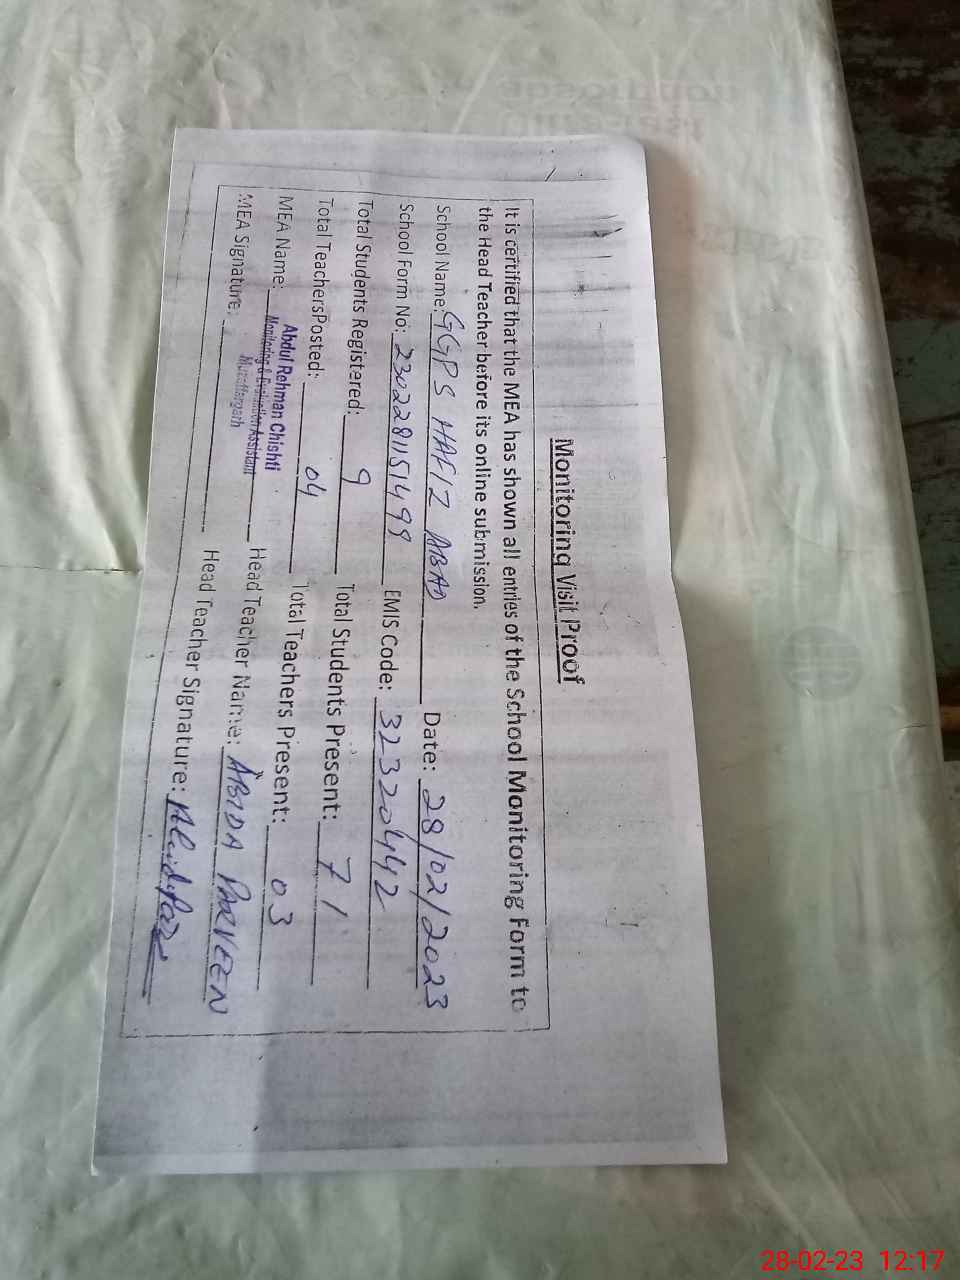 Monitoring Visit Proof
It is certified that the MEA has shown all entries of the School Monitoring Form to
the Head Teacher before its online submission.
School Name: GGPS HAFIZ ABAD Date: 28/02/2023
School Form No: 230228151499 EMIS Code: 32320442
Total Students Registered: 9 Total Students Present: 71
Total TeachersPosted: 04 Total Teachers Present: 03
MEA Name: Abdul Rehman Chishti Head Teacher Name: ABIDA PARVEEN
Monitoring & Evaluation Assistant
Muzaffargarh
MEA Signature: Head Teacher Signature:
28-02-23 12:17